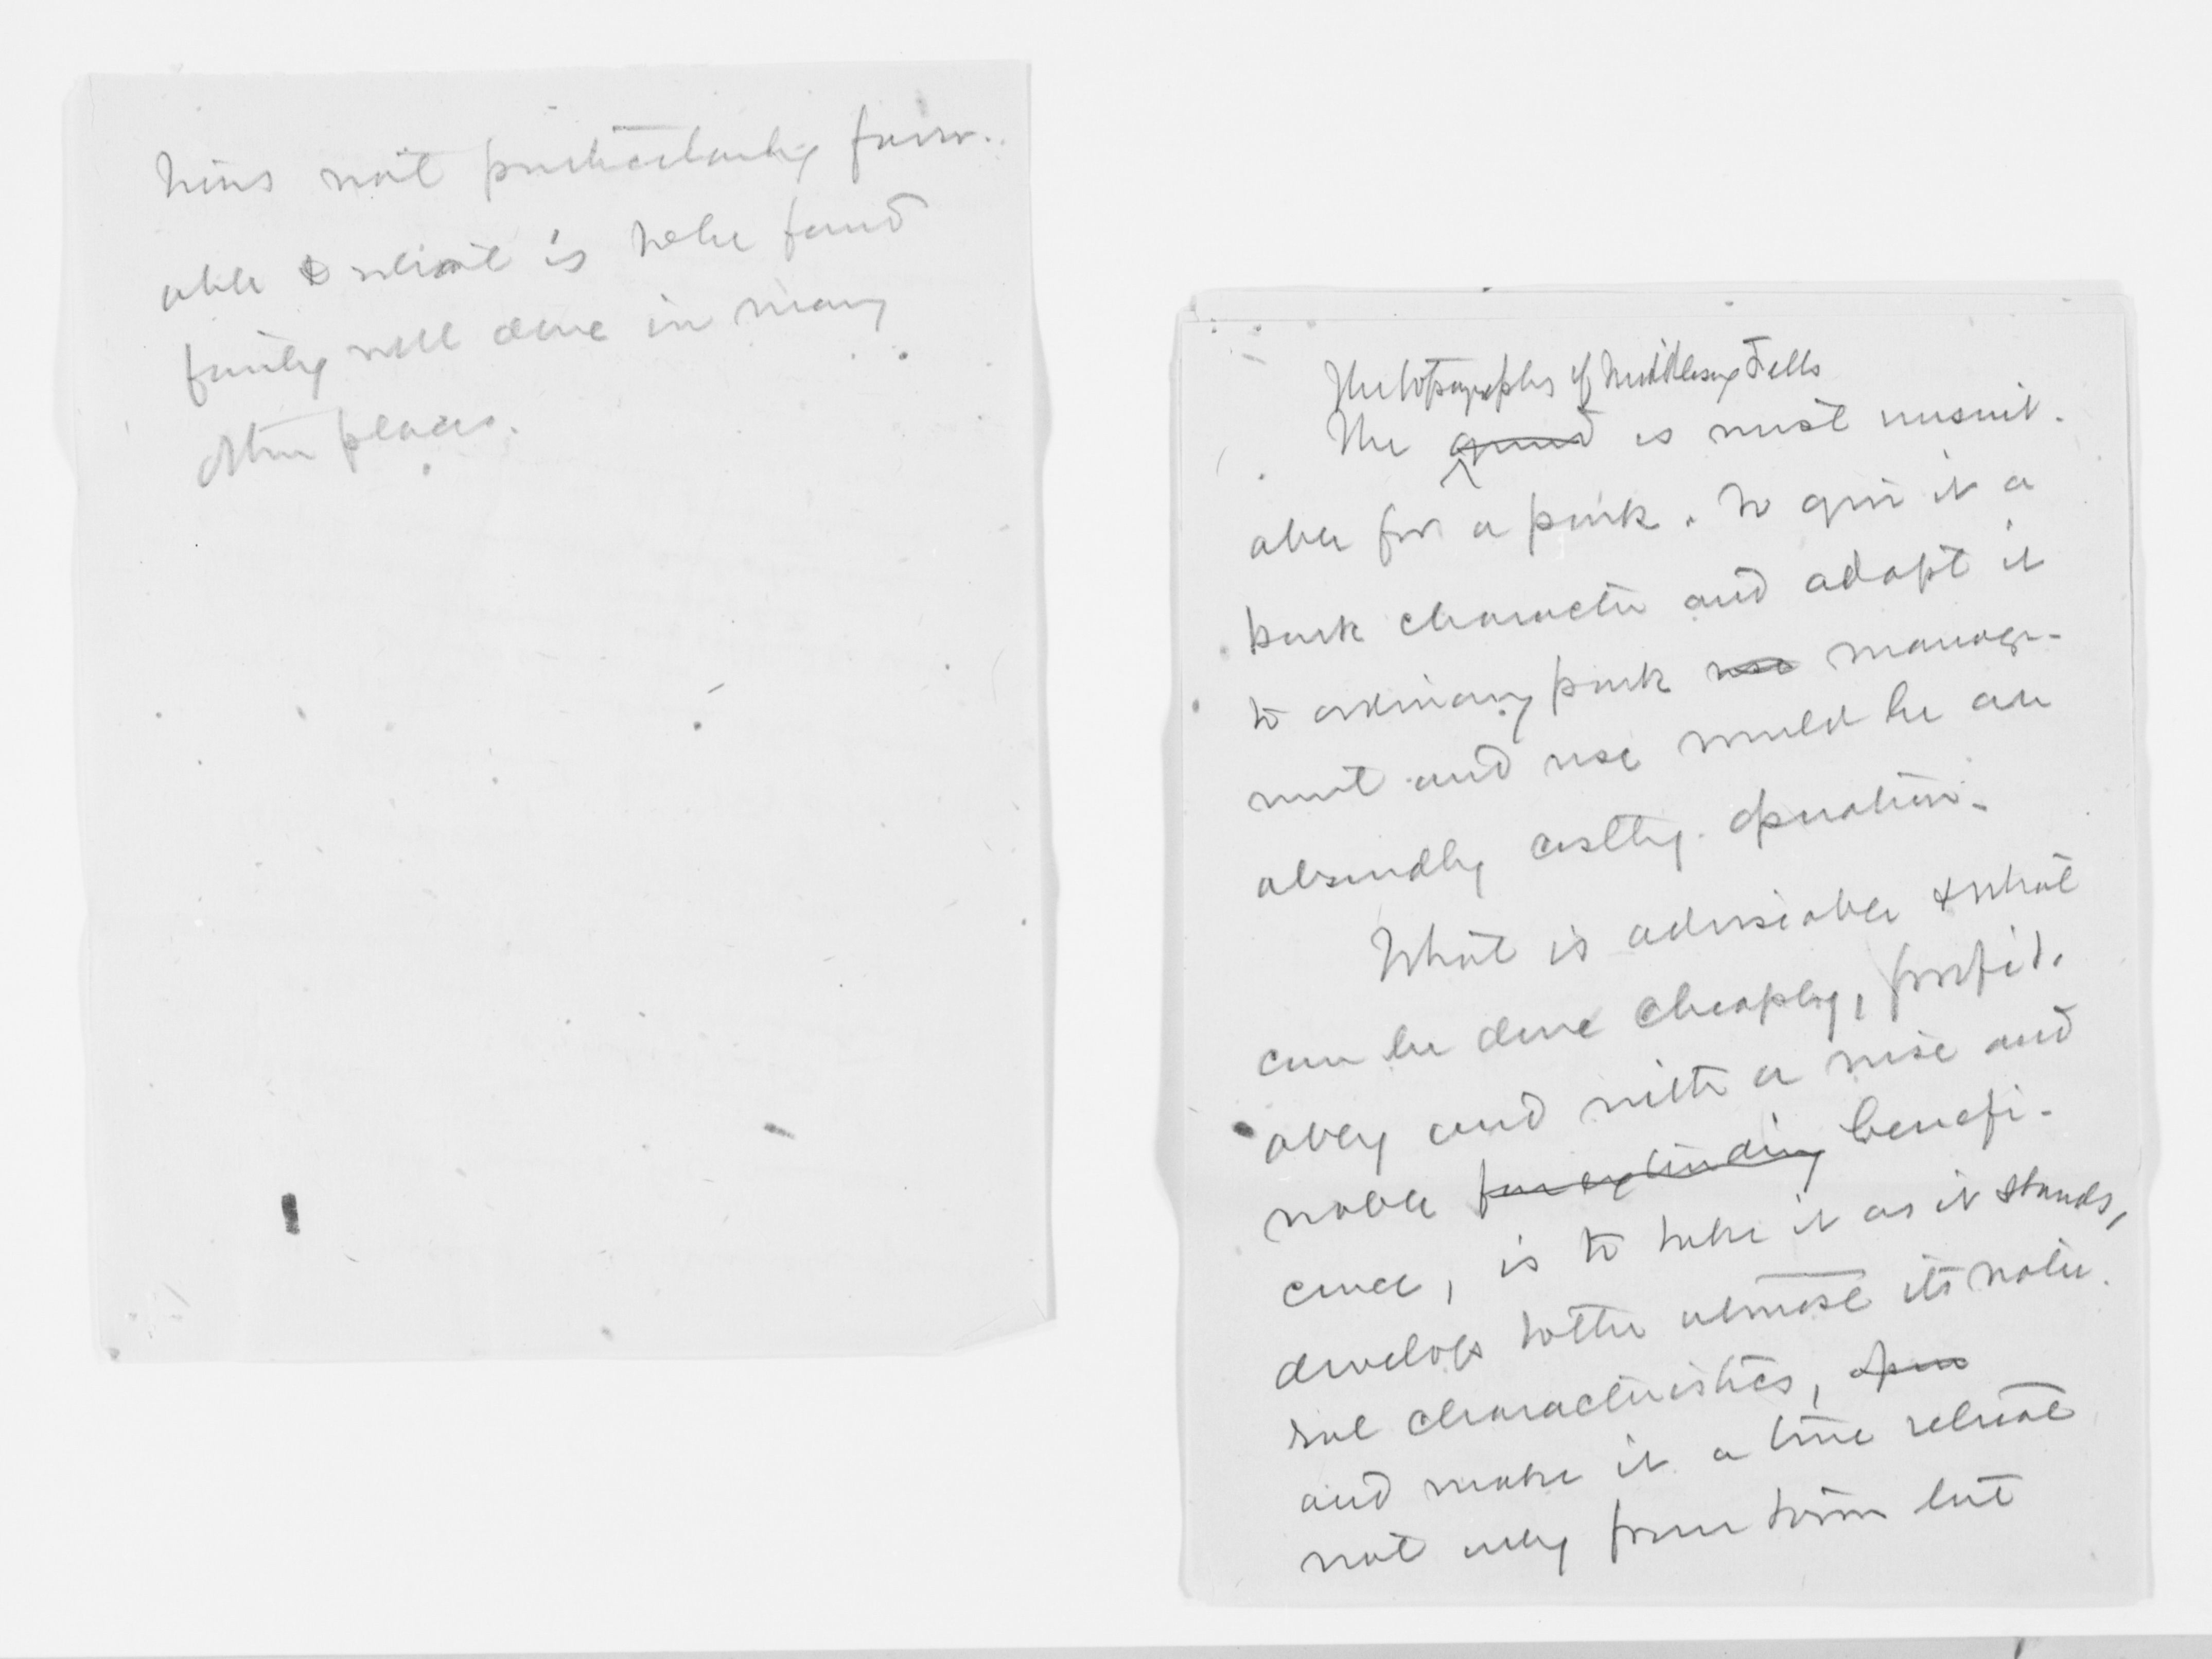 tions not particularly favor-
able & what is to be found
fairly well done in many
other places.
The topography of Middlesex Fells
The ground is most unsuit-
able for a park. To give it a
park character and adapt it
to ordinary park use manage-
ment and use would be an
absurdly costly operation.
What is advisable & what
can be done cheaply, profit-
ably and with a wise and
noble far extending benefi-
cence, is to take it as it stands,
develop to the utmost its natu-
ral characteristics, open
and make it a true retreat
not only from town but